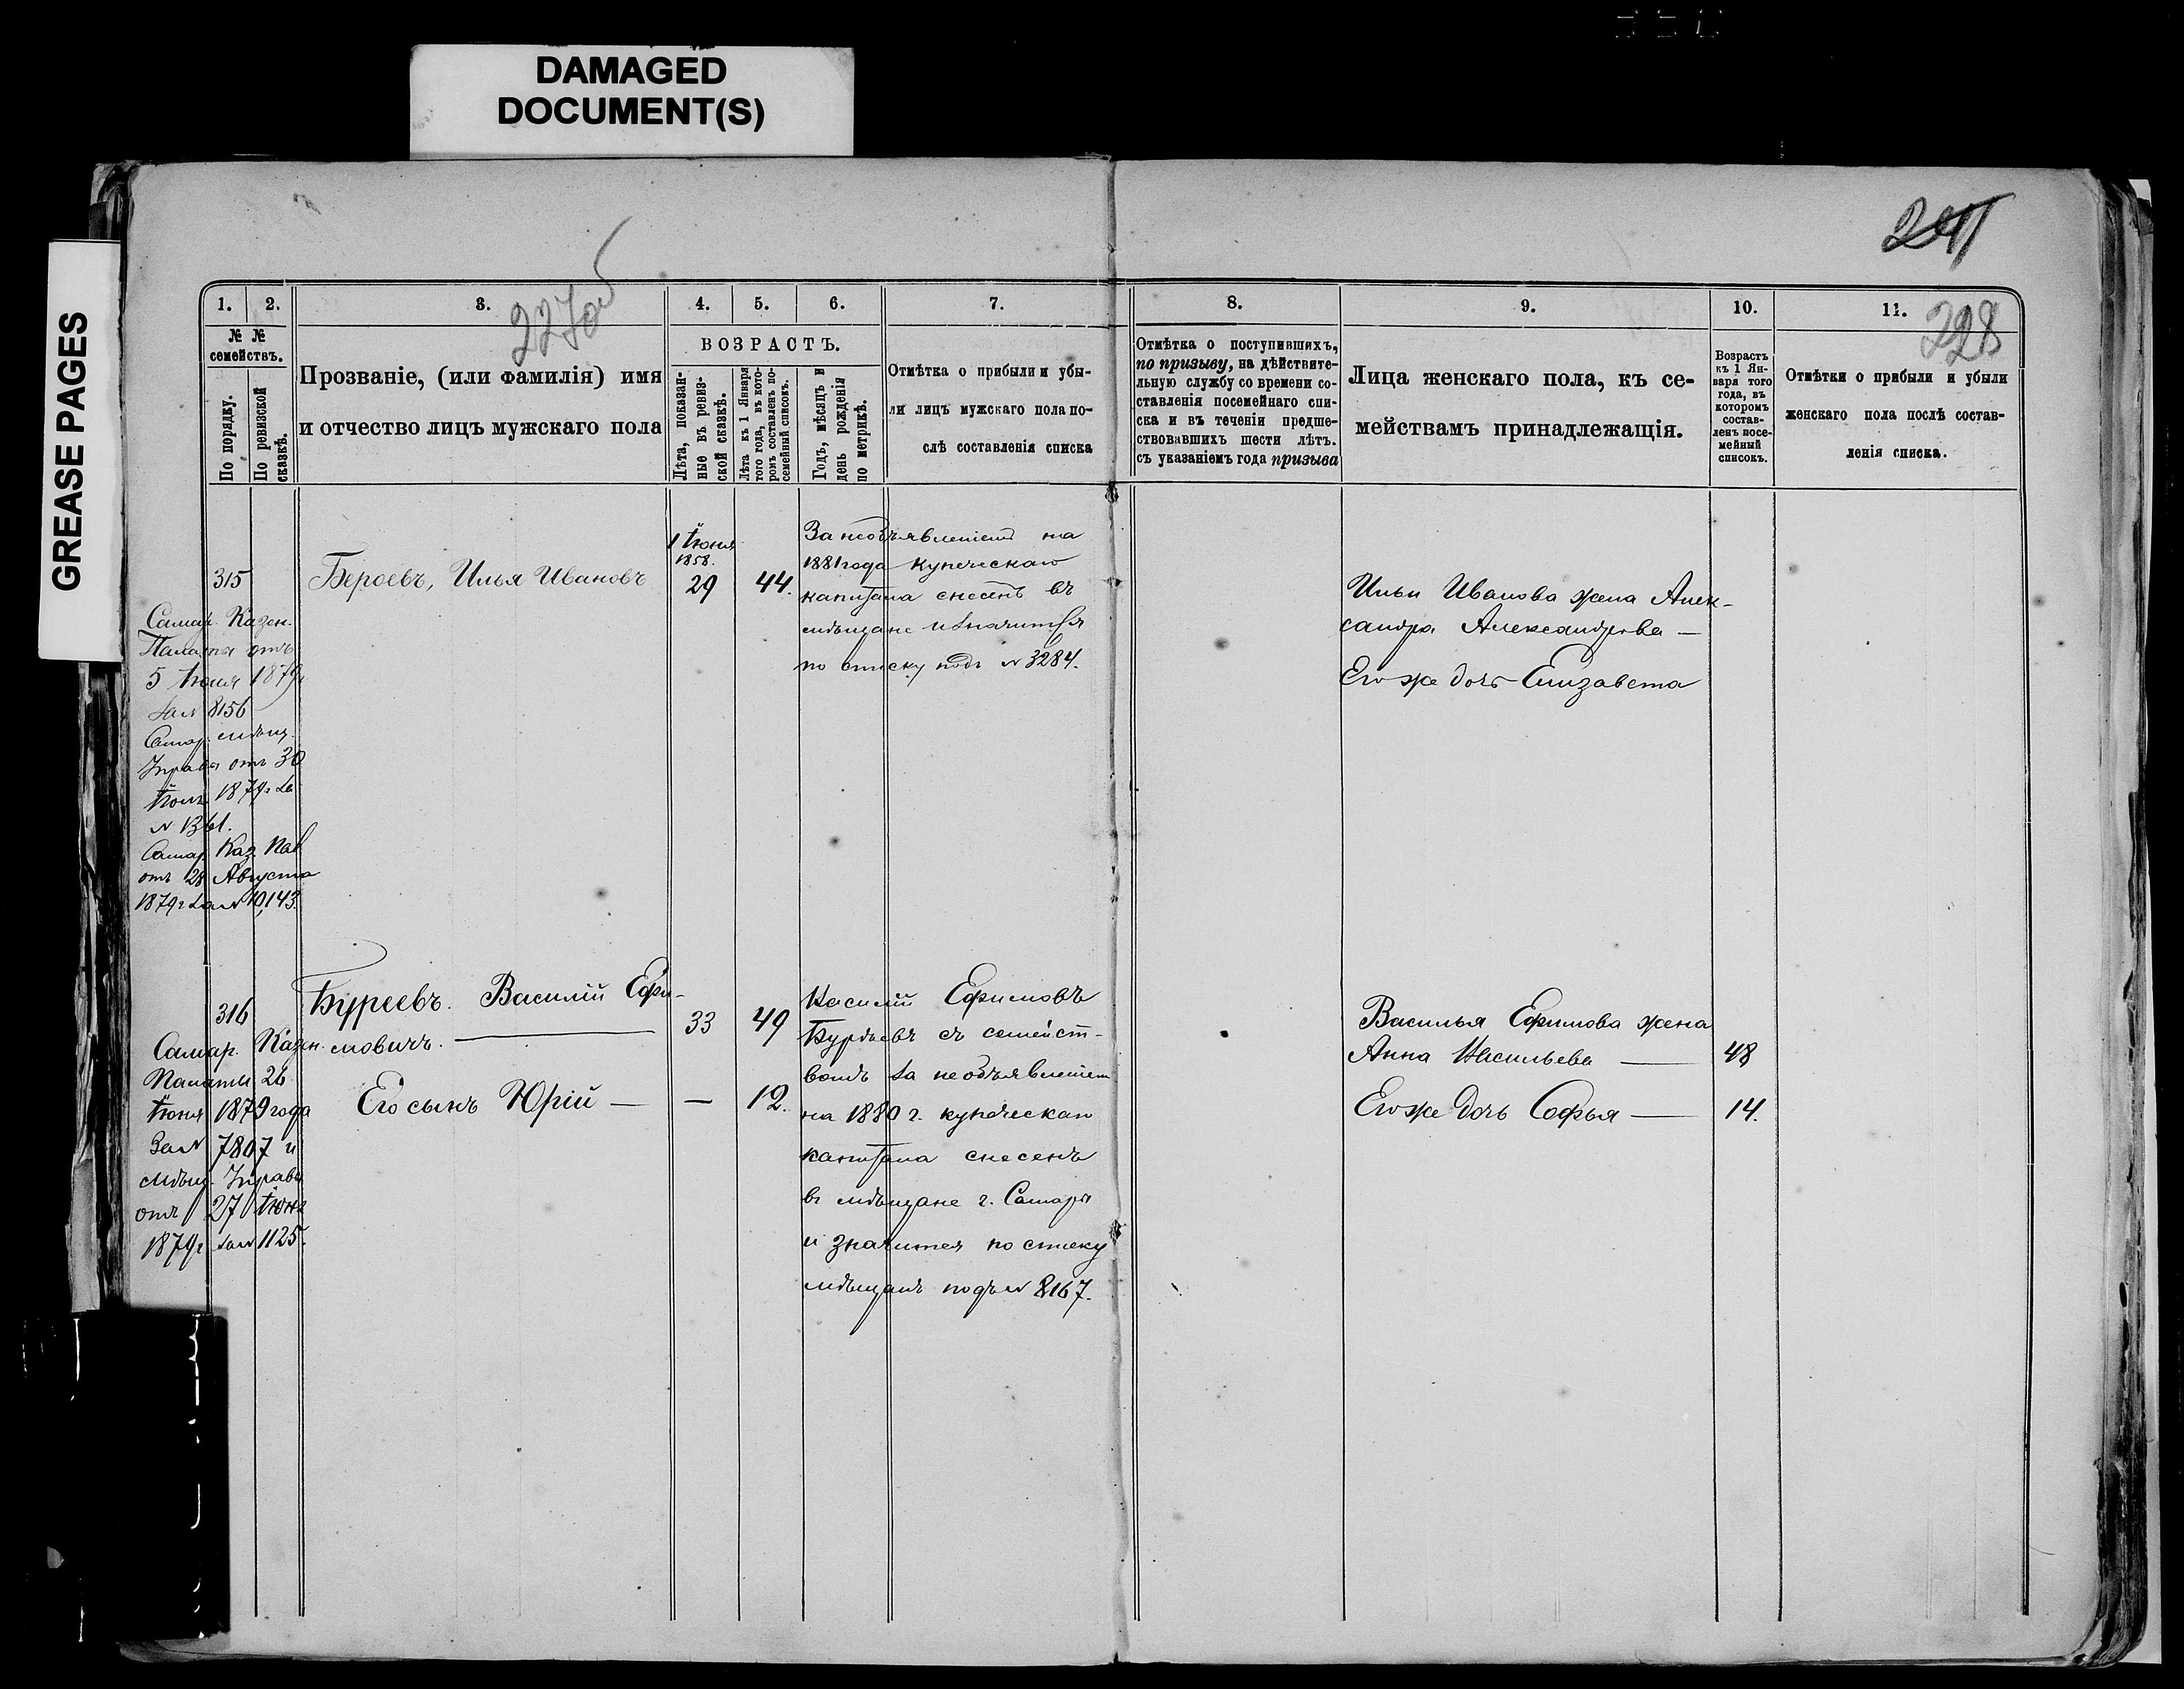 DAMAGED
DOCUMENT(S)
GREASE PAGES
241
227об
228
1.
2.
3.
4.
5.
6.
7.
8.
9.
10.
11.
№ №
семействъ.
По порядку.
По ревизской
сказкѣ.
Прозваніе, (или фамилія) имя
и отчество лицъ мужскаго пола
ВОЗРАСТЪ.
Лѣта, показан-
ные въ ревиз-
ской сказкѣ.
Лѣта къ 1 Января
того года, въ кото-
ромъ составленъ по-
семейный списокъ.
Годъ, мѣсяцъ и
день рожденія
по метрикѣ.
Отмѣтка о прибыли и убы-
ли лицъ мужскаго пола по-
слѣ составленія списка
Отмѣтка о поступившихъ,
по призыву, на дѣйствите-
льную службу со времени со-
ставленія посемейнаго спи-
ска и въ теченіи предше-
ствовавшихъ шести лѣтъ.
съ указаніемъ года призыва
Лица женскаго пола, къ се-
мействамъ принадлежащія.
Возрастъ
къ 1 Ян-
варя того
года, въ
которомъ
состав-
ленъ посе-
мейный
списокъ.
Отмѣтки о прибыли и убыли
женскаго пола послѣ состав-
ленія списка.
315
Самар. Казен.
Палата отъ
5 Іюня 1879г
за № 8156
Самар. мѣщ.
Управа отъ 30
1879г за
№ 1361.
Самар. Каз. Пал
отъ 28 Августа
1879г за № 10,143.
Бероевъ, Илья Ивановъ
1 Іюня
1858.
29
44.
За необъявленіемъ на
1881 года купеческаго
капитала снесенъ въ
мѣщане и значится
по списку подъ № 3284.
Ильи Иванова жена Алек-
сандра Александрова —
Его же дочь Елизавета
316
Самар. Казен.
Палаты 26
Іюня 1879 года
За № 7807 и
мѣщ. Управы
отъ 27 Іюня
1879г за № 1125.
Буреевъ. Василій Ефи-
мовичъ. —
33
49
Его сынъ Юрій —
—
12.
Василій Ефимовъ
Бурѣевъ съ семейст-
вомъ за необъявленіем
на 1880 г. купеческаго
капитала снесенъ
въ мѣщане г. Самары
и значится по списку
мѣщанъ подъ № 8167.
Василья Ефимова жена
Анна Васильева —
48
Его же дочь Софья —
14.